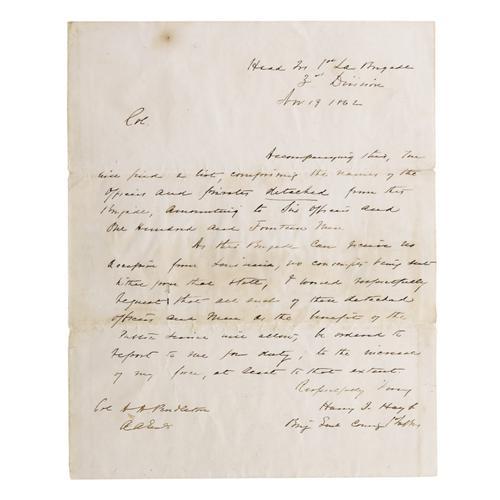 Head Qrs 1st La Brigade
2nd Division
Nov 19 1862
Col.
Accompanying this, you
will find a list, comprising the names of the
Officers and privates detached from this
Brigade, amounting to Six Officers and
One Hundred and Fourteen Men
As this Brigade can receive no
accession from Louisiana, no conscripts being sent
hither from that State, I would respectfully
request that all such of these detached
officers and Men as the benefit of the
Public service will allow, be ordered to
report to me for duty, to the increase
of my force, at least to that extent
Respectfully Yours
Col A. S. Pendleton Harry T. Hays
Brig Genl Comdg 1st La Brig